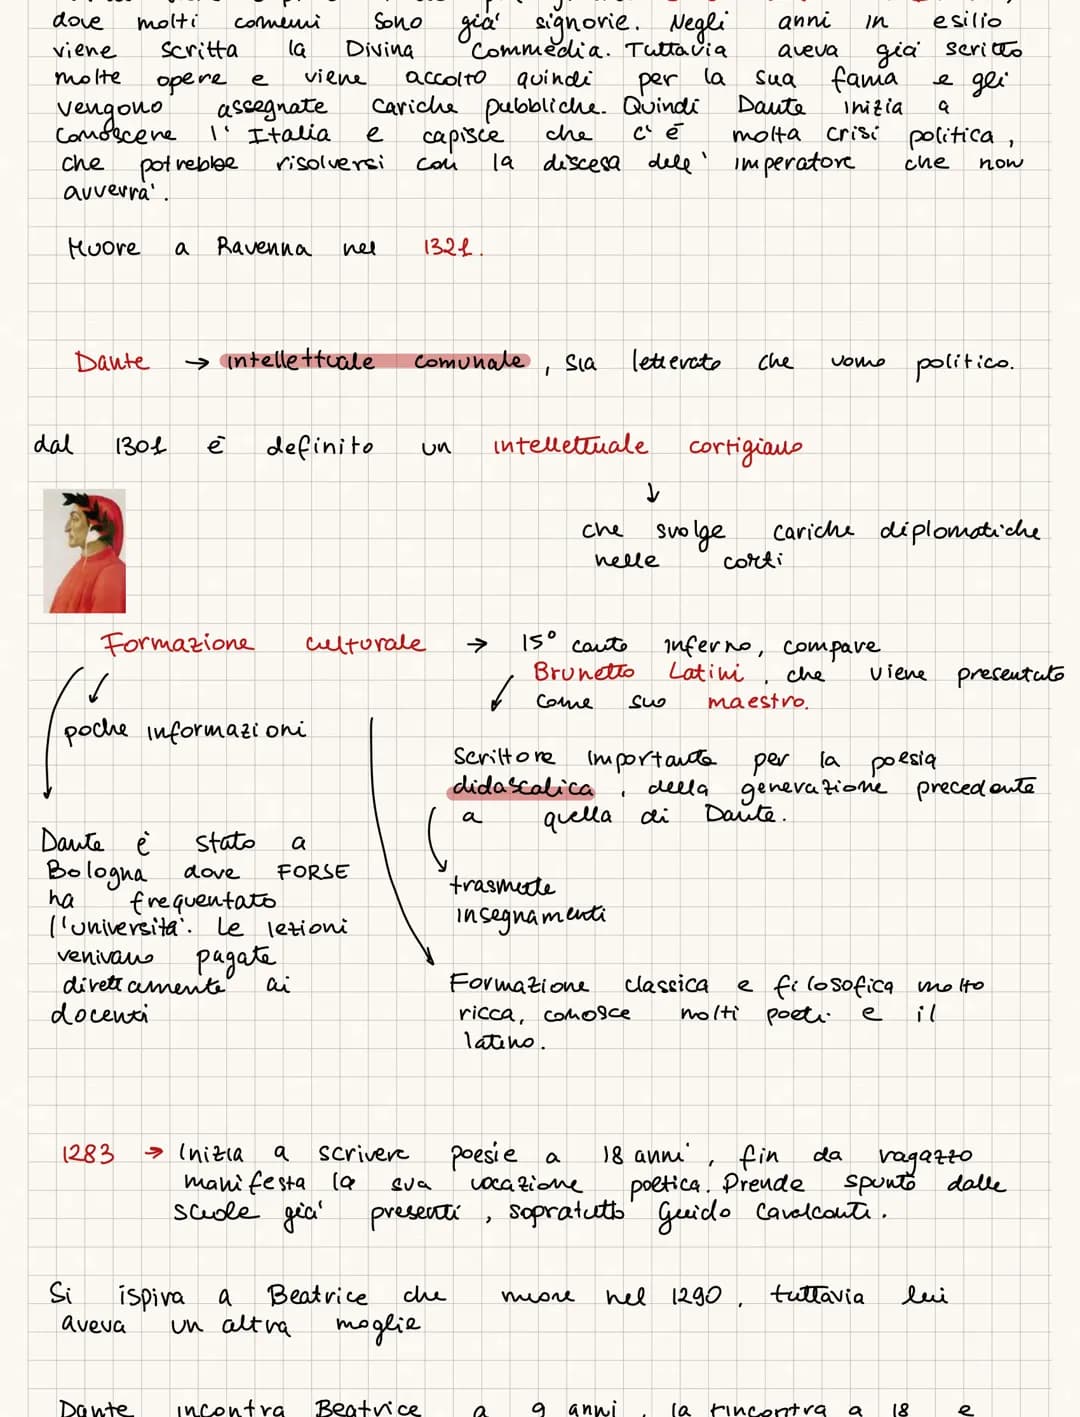 dove molti comuni sono già signorie. Negli anni in esilio
viene scritta la Divina Commedia. Tuttavia aveva già scritto
molte opere e viene accolto quindi per la sua fama e gli
vengono assegnate cariche pubbliche. Quindi Dante inizia a
conoscere l'Italia e capisce che c'è molta crisi politica,
che potrebbe risolversi con la discesa dell'imperatore che non
avverrà.
Muore a Ravenna nel 1321.
Dante → intellettuale comunale, sia letterato che uomo politico.
dal 1301 è definito un intellettuale cortigiano
↓
che svolge cariche diplomatiche
nelle corti
Formazione culturale → 15° canto inferno, compare
Brunetto Latini, che viene presentato
come suo maestro.
poche informazioni
Scrittore importante per la poesia
didascalica, della generazione precedente
a quella di Dante.
trasmette
insegnamenti
Dante è stato a
Bologna dove FORSE
ha frequentato
l'università. Le lezioni
venivano pagate
direttamente ai
docenti
Formazione classica e filosofica molto
ricca, conosce molti poeti e il
latino.
1283 → Inizia a scrivere poesie a 18 anni, fin da ragazzo
manifesta la sua vocazione poetica. Prende spunto dalle
scuole già presenti, sopratutto Guido Cavalcanti.
Si ispira a Beatrice che muore nel 1290, tuttavia lui
aveva un altra moglie
Dante incontra Beatrice a 9 anni, la rincontra a 18 e